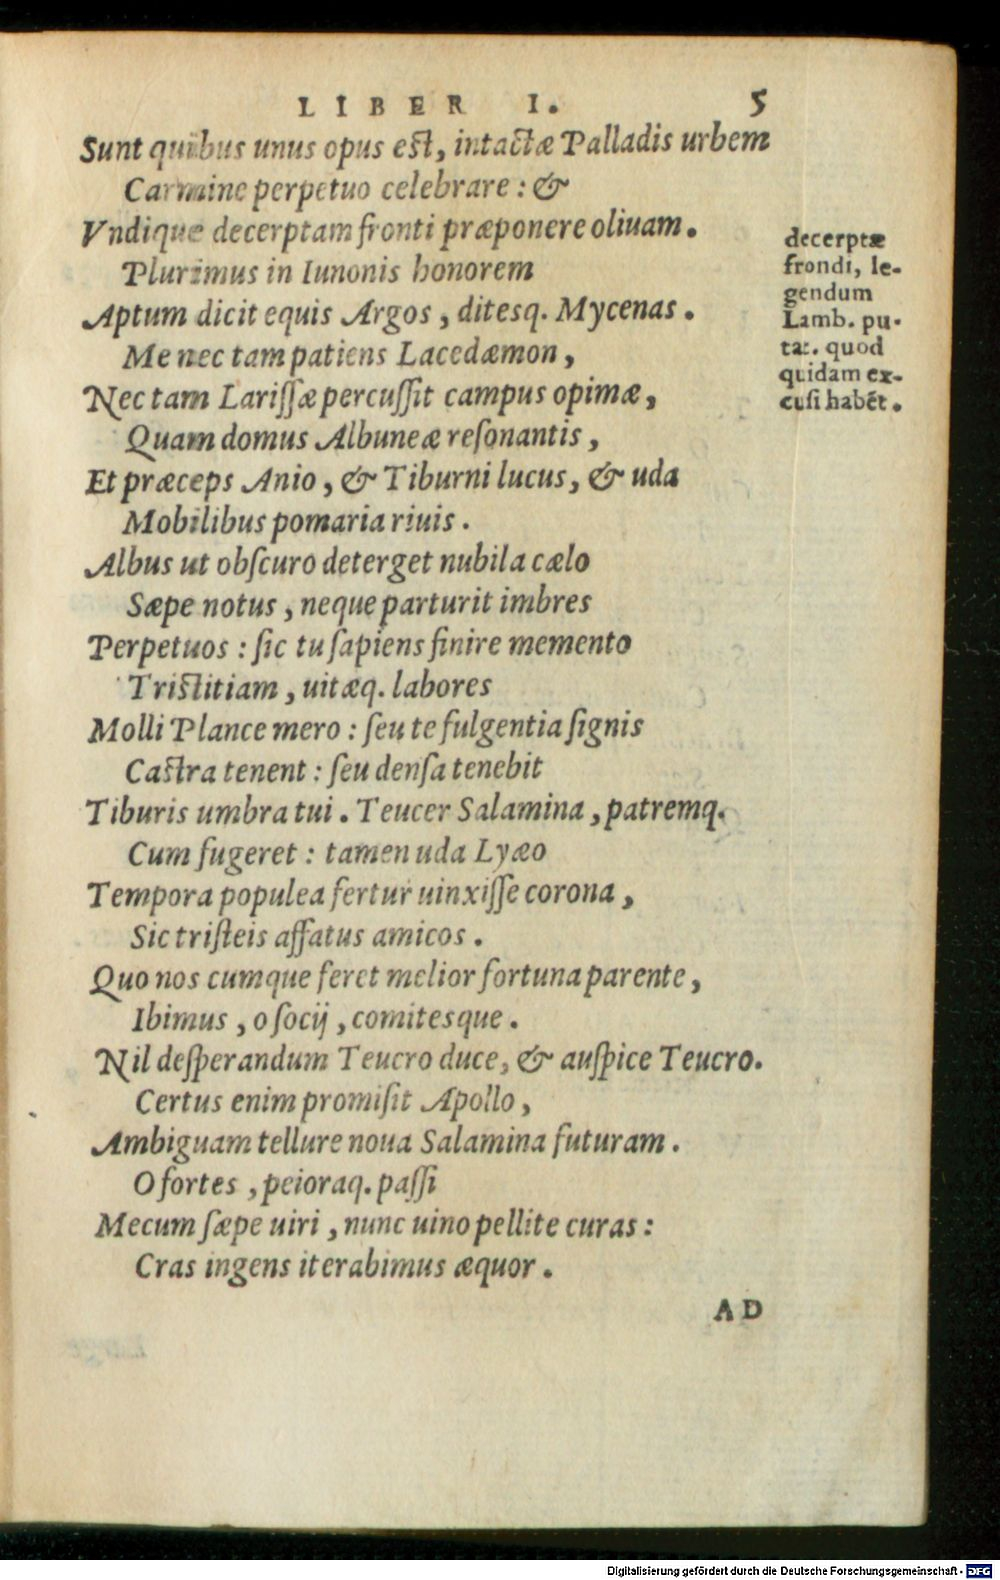 LIBER I. 5
Sunt quibus unus opus est, intactæ Palladis urbem
Carmine perpetuo celebrare : &
Vndique decerptam fronti præponere oliuam.
Plurimus in Iunonis honorem
Aptum dicit equis Argos, ditesq. Mycenas.
Me nec tam patiens Lacedæmon,
Nec tam Larissæ percussit campus opimæ,
Quam domus Albuneæ resonantis,
Et præceps Anio, & Tiburni lucus, & uda
Mobilibus pomaria riuis.
Albus ut obscuro deterget nubila cælo
Sæpe notus, neque parturit imbres
Perpetuos : sic tu sapiens finire memento
Tristitiam, uitæq. labores
Molli Plance mero : seu te fulgentia signis
Castra tenent : seu densa tenebit
Tiburis umbra tui. Teucer Salamina, patremq.
Cum fugeret : tamen uda Lyæo
Tempora populea fertur uinxisse corona,
Sic tristeis affatus amicos.
Quo nos cumque feret melior fortuna parente,
Ibimus, o socij, comitesque.
Nil desperandum Teucro duce, & auspice Teucro.
Certus enim promisit Apollo,
Ambiguam tellure noua Salamina futuram.
O fortes, peioraq. passi
Mecum sæpe uiri, nunc uino pellite curas :
Cras ingens iterabimus æquor.
AD
decerptæ
frondi, le-
gendum
Lamb. pu-
tat. quod
quidam ex-
cusi habēt.
Digitalisierung gefördert durch die Deutsche Forschungsgemeinschaft - DFG